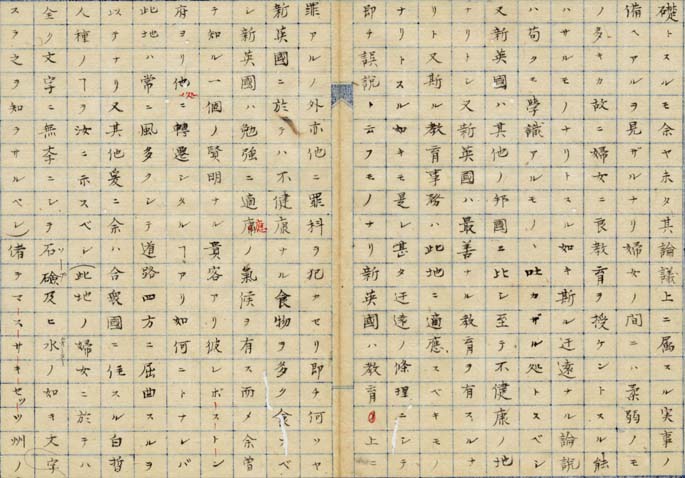 礎トスルモ余ヤ未タ其論議上ニ属スル実事ノ
備ヘアルヲ見ザルナリ婦女ノ間ニハ柔弱ノモ
ノ多キカ故ニ婦女ニ良教育ヲ授ケントスル能
ハサルモノナリトスル如キ斯ル迂遠ナル論説
ハ苟クモ学識アルモノヽ吐カザル処トスベシ
又新英國ハ其他ノ邦國ニ比シ至テ不健康ノ地
ナリトシ又新英國ハ最善ナル教育ヲ有スルナ
リト又斯ル教育事務ハ此地ニ適應スベキモノ
ナリトスル如キモ是レ甚タ迂遠ノ條理ニシテ
即チ誤説ト云フモノナリ新英國ハ教育ノ上ニ
罪アルノ外亦他ニ罪科ヲ犯カセリ即チ何ツヤ
新英國ニ於テハ不健康ナル食物ヲ多ク食シベ
レ新英國ハ勉強ニ適應ノ氣候ヲ有ス而メ余曽
テ知ル一個ノ賢明ナル貴客アリ彼レボーストーン
府ヨリ他処ニ轉遷シタルヿアリ如何ニトナレバ
此地ハ常ニ風多クシテ道路四方ニ屈曲スルヲ
以テナリ又其他爰ニ余ハ合衆國ニ住スル白哲
人種ノヿヲ汝ニ示スベシ(此地ノ婦女ニ於テハ
全ク文字ニ無李ニシテ石鹸及ヒ水ノ如キ文字
スラ之ヲ知ラサルベシ)偖テマースーサキセッツ州ノ